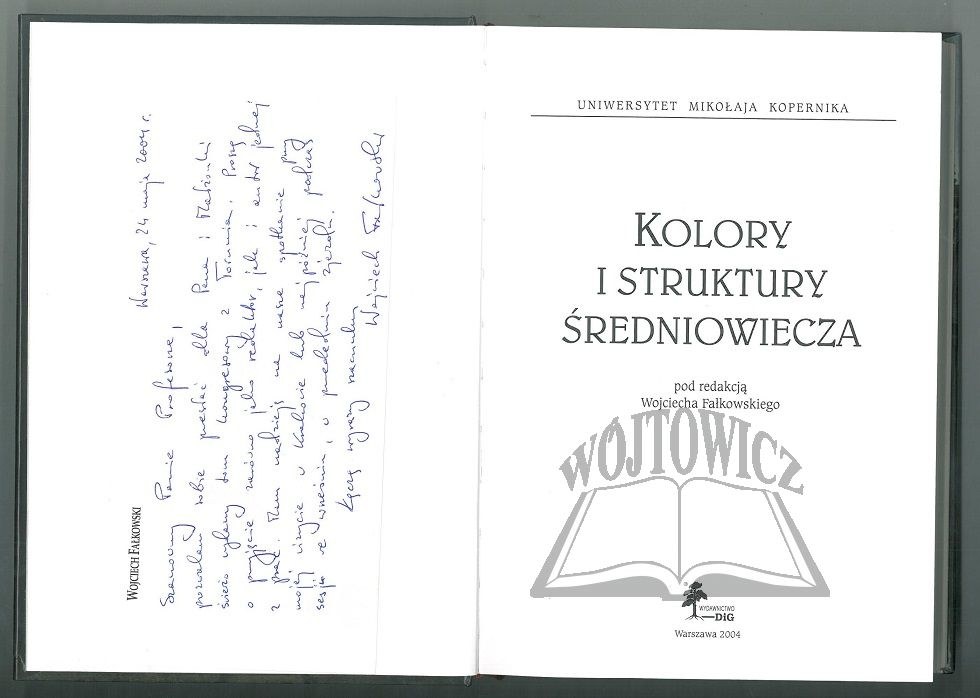 WOJCIECH FAŁKOWSKI
Warszawa, 24 maja 2004 r.
Szanowny Panie Profesorze,
pozwalam sobie przesłać dla Pana i Małżonki
świeżo wydany tom kongresowy z Torunia. Proszę
o przyjęcie zarówno jako redaktor, jak i autor jednej
z prac. Mam nadzieję na nasze spotkanie przy
mojej wizycie w Krakowie lub najpóźniej podczas
sesji we wrześniu, w przededniu zjazdu.
Łączę wyrazy szacunku
Wojciech Fałkowski
UNIWERSYTET MIKOŁAJA KOPERNIKA
KOLORY
I STRUKTURY
ŚREDNIOWIECZA
pod redakcją
Wojciecha Fałkowskiego
WÓJTOWICZ
WYDAWNICTWO
DiG
Warszawa 2004